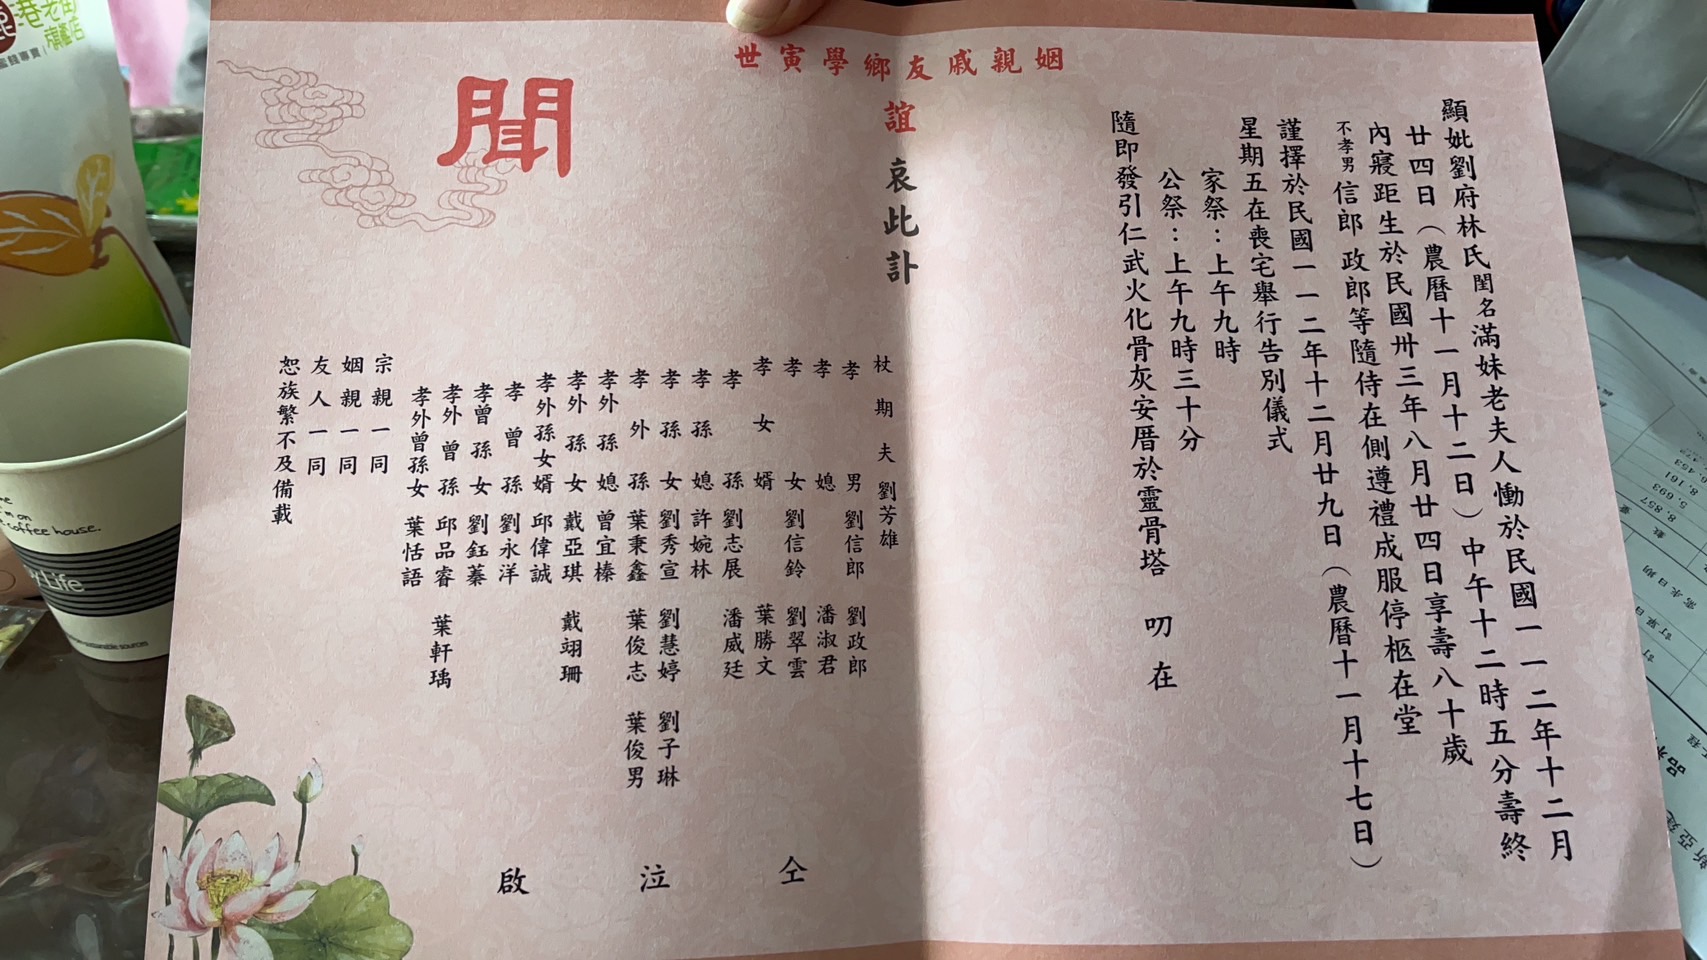 顯妣劉府林氏閨名滿妹老夫人慟於民國一一二年十二月
廿四日（農曆十一月十二日）中午十二時五分壽終
內寢距生於民國卅三年八月廿四日享壽八十歲
不孝男信郎 政郎等隨侍在側遵禮成服停柩在堂
謹擇於民國一一二年十二月廿九日（農曆十一月十七日）
星期五在喪宅舉行告別儀式
家祭：上午九時
公祭：上午九時三十分
隨即發引仁武火化骨灰安厝於靈骨塔 叨在
姻親戚友鄉學寅世
誼 哀此訃
聞
杖期夫 劉芳雄
孝男 劉信郎 劉政郎
孝媳 潘淑君
孝女 劉信鈴 劉翠雲
孝女婿 葉勝文
孝孫 劉志展 潘威廷
孝孫媳 許婉林
孝孫女 劉秀宣 劉慧婷 劉子琳
孝外孫 葉秉鑫 葉俊志 葉俊男
孝外孫媳 曾宜榛
孝外孫女 戴亞琪 戴翊珊
孝外孫女婿 邱偉誠
孝曾孫 劉永洋
孝曾孫女 劉鈺蓁
孝外曾孫 邱品睿 葉軒瑀
孝外曾孫女 葉恬語
仝 泣 啟
宗親一同
姻親一同
友人一同
恕族繁不及備載
coffee house.
Life